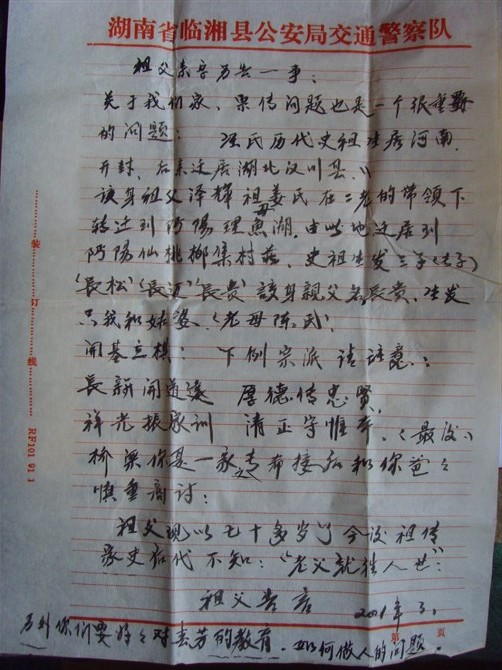 湖南省临湘县公安局交通警察队
祖父亲笔另告一事：
关于我们家 宗传问题也是一个很重要
的问题： 氏历代史祖生居河南
开封，后来迁居湖北汉川县。
该身祖父泽辉 祖母姜氏 在二老的带领下
转迁到沔陽 魚湖，由此地迁居到
沔陽仙桃 集村 。史祖生发三子
"長松" "長 " "長贵" 該身親父名長贵，生发
只我和 （老母陈氏）
開基立 ： 下例宗派 請 意：
長新開道遠 厚德传忠賢
祥光振家训 清正守惟 。（最後）
你是一家 希接 和你爸々
慎重商讨：
祖父现以七十多岁了 今后祖传
家史后代不知： "老父就 人世"：
祖父告言 2001年3.
另外你们要好々对 芳的教育。如何做人的问题。
第 页
装 订 线
RF101 91 1